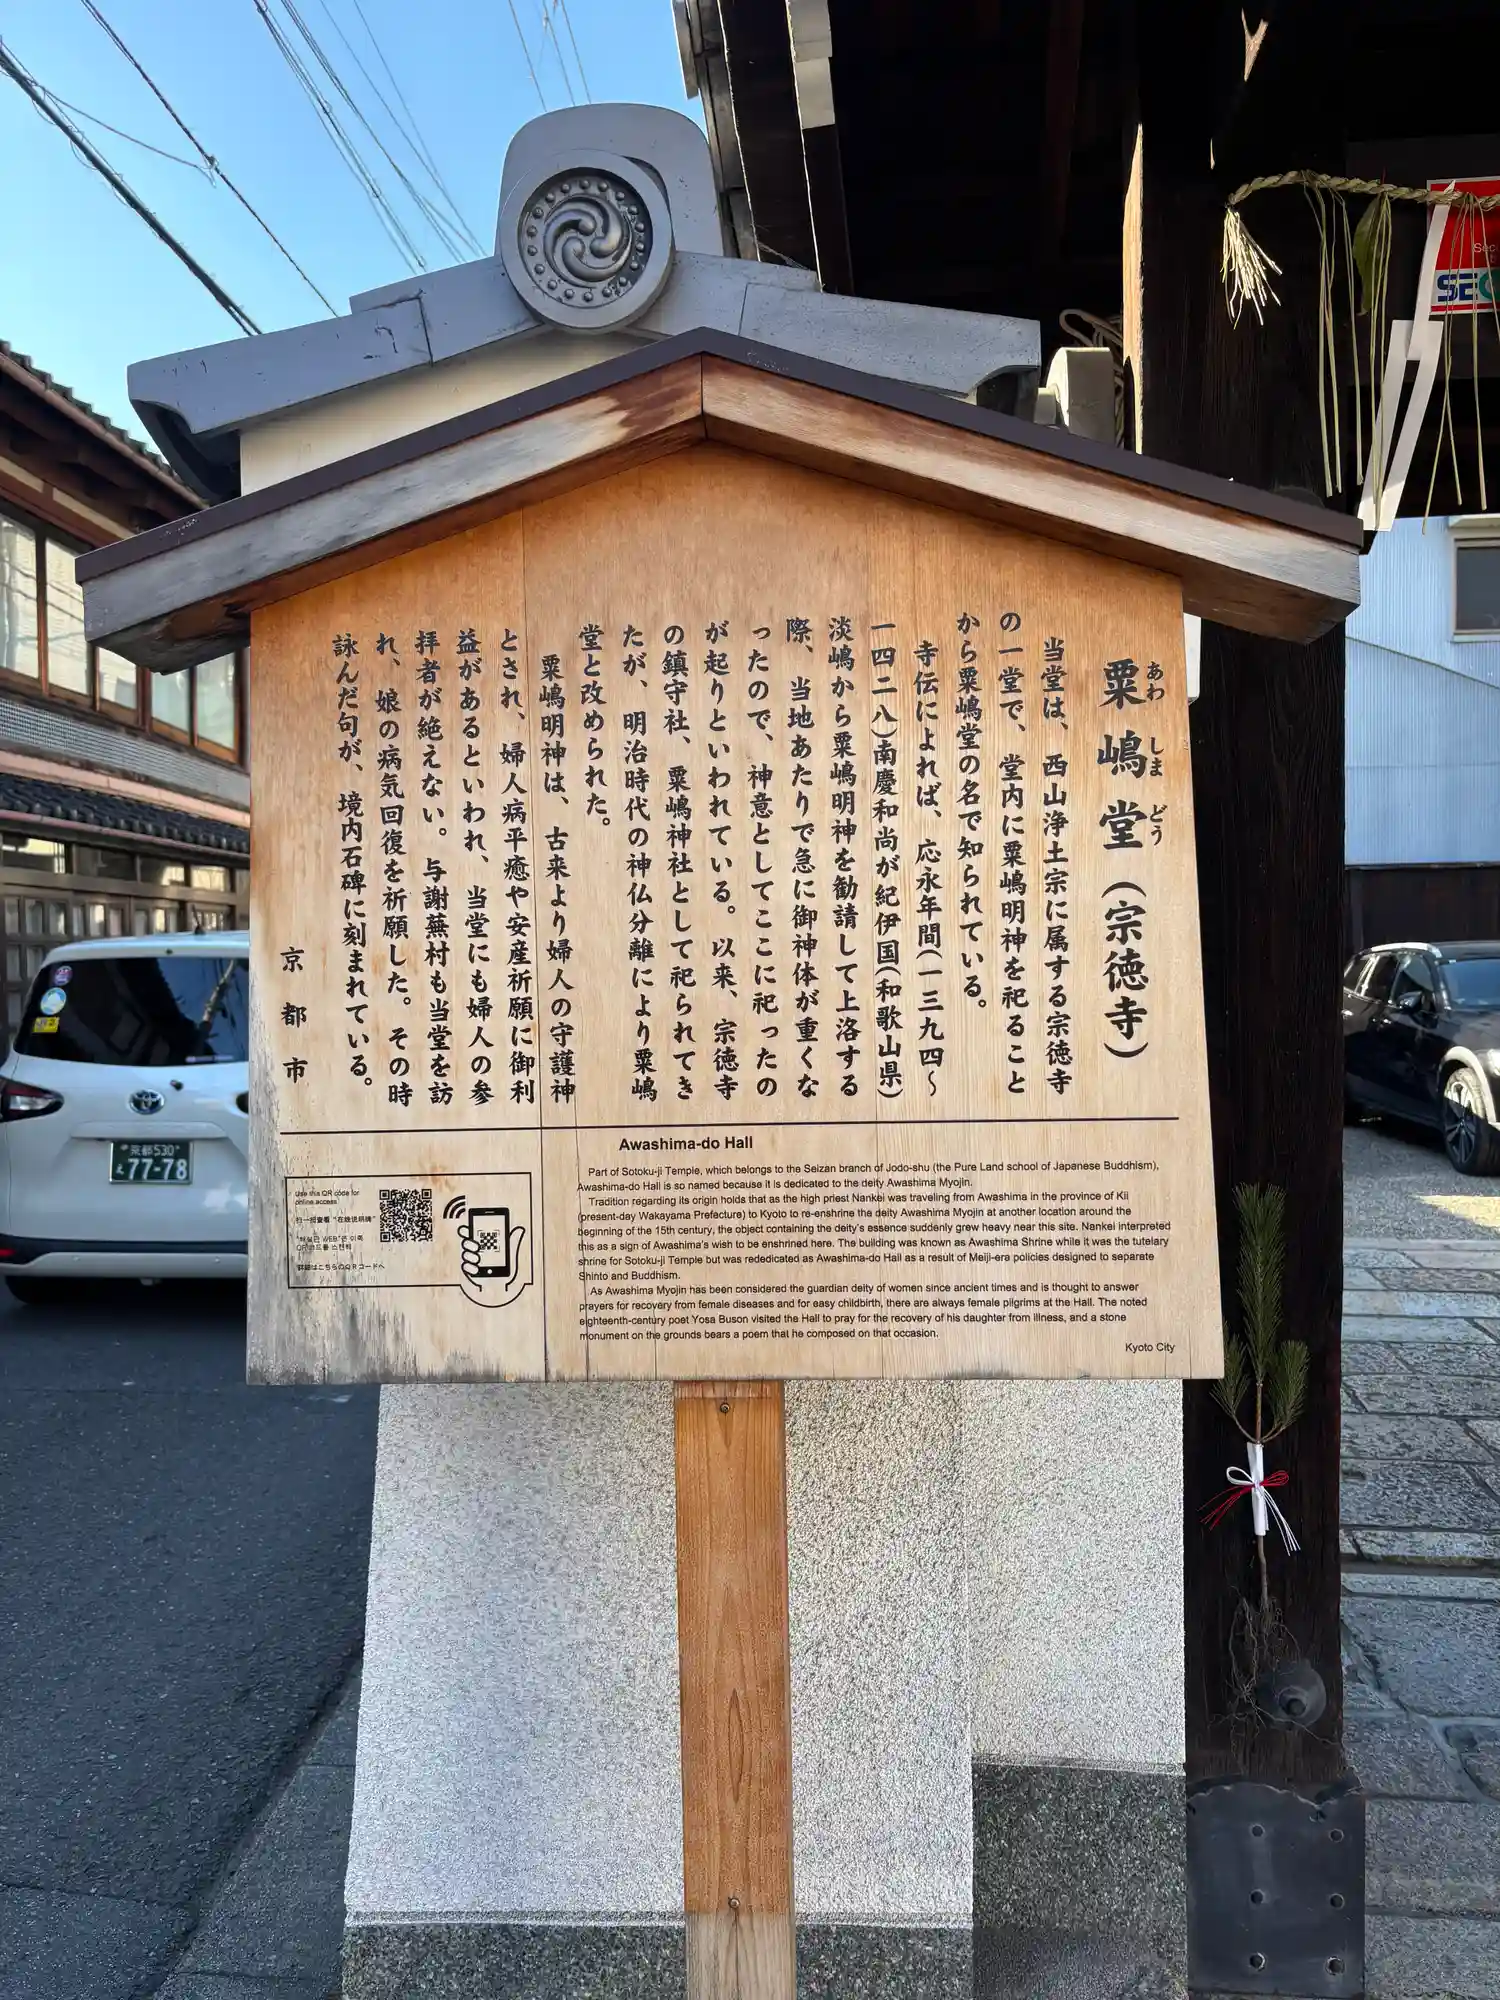 粟嶋堂(宗徳寺)
あわ しま どう
当堂は、西山浄土宗に属する宗徳寺
の一堂で、堂内に粟嶋明神を祀ること
から粟嶋堂の名で知られている。
寺伝によれば、応永年間(一三九四〜
一四二八)南慶和尚が紀伊国(和歌山県)
淡嶋から粟嶋明神を勧請して上洛する
際、当地あたりで急に御神体が重くな
ったので、神意としてここに祀ったの
が起りといわれている。以来、宗徳寺
の鎮守社、粟嶋神社として祀られてき
たが、明治時代の神仏分離により粟嶋
堂と改められた。
粟嶋明神は、古来より婦人の守護神
とされ、婦人病平癒や安産祈願に御利
益があるといわれ、当堂にも婦人の参
拝者が絶えない。与謝蕪村も当堂を訪
れ、娘の病気回復を祈願した。その時
詠んだ句が、境内石碑に刻まれている。
京都市
Awashima-do Hall
Part of Sotoku-ji Temple, which belongs to the Seizan branch of Jodo-shu (the Pure Land school of Japanese Buddhism),
Awashima-do Hall is so named because it is dedicated to the deity Awashima Myojin.
Tradition regarding its origin holds that as the high priest Nankei was traveling from Awashima in the province of Kii
(present-day Wakayama Prefecture) to Kyoto to re-enshrine the deity Awashima Myojin at another location around the
beginning of the 15th century, the object containing the deity's essence suddenly grew heavy near this site. Nankei interpreted
this as a sign of Awashima's wish to be enshrined here. The building was known as Awashima Shrine while it was the tutelary
shrine for Sotoku-ji Temple but was rededicated as Awashima-do Hall as a result of Meiji-era policies designed to separate
Shinto and Buddhism.
As Awashima Myojin has been considered the guardian deity of women since ancient times and is thought to answer
prayers for recovery from female diseases and for easy childbirth, there are always female pilgrims at the Hall. The noted
eighteenth-century poet Yosa Buson visited the Hall to pray for the recovery of his daughter from illness, and a stone
monument on the grounds bears a poem that he composed on that occasion.
Kyoto City
Use this QR code for
online access
扫一扫查看"在线说明牌"
"해설판 WEB"은 이쪽
QR 코드를 스캔해
詳細はこちらのQRコードへ
京都 530
え 77-78